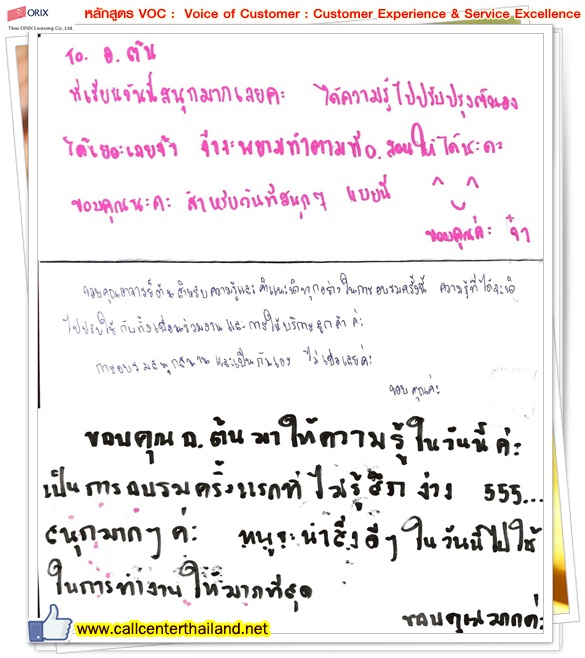 ORIX
Thai ORIX Leasing Co.,Ltd.
หลักสูตร VOC : Voice of Customer : Customer Experience & Service Excellence
To. อ.ต้น
ที่เรียนวันนี้สนุกมากเลยค่ะ ได้ความรู้ไปปรับปรุงตัวเอง
ได้เยอะเลยจ้า จ๋าจะพยามทำตามที่อ.สอนให้ได้นะคะ
ขอบคุณนะคะ สำหรับวันที่สนุกๆ แบบนี้
ขอบคุณค่ะ จ๋า
ขอบคุณอาจารย์ต้นสำหรับความรู้และคำแนะนำทุกอย่างในการอบรมครั้งนี้ ความรู้ที่ได้จะนำ
ไปปรับใช้กับทั้งเพื่อนร่วมงาน และการให้บริการลูกค้า ค่ะ
การอบรมสนุกสนาน และเป็นกันเอง ไม่เบื่อเลยค่ะ
ขอบคุณค่ะ
ขอบคุณ อ.ต้น มาให้ความรู้ในวันนี้ค่ะ
เป็นการอบรมครั้งแรกที่ไม่รู้สึก ง่วง 555...
สนุกมากๆ ค่ะ หนูจะนำสิ่งดีๆ ในวันนี้ไปใช้
ในการทำงานให้มากที่สุด
ขอบคุณมากค่ะ
www.callcenterthailand.net